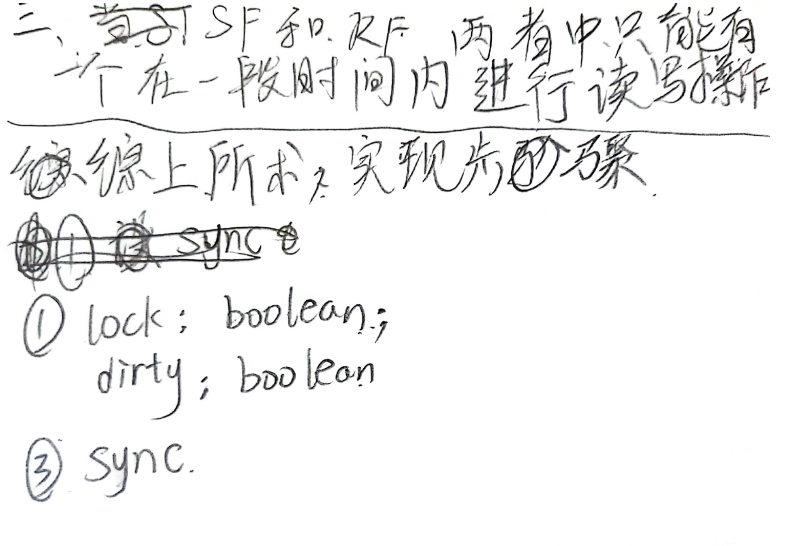 三、SF和RF 两者中只能有
一个在一段时间内进行读写操作
综上所求,实现步骤.
① lock: boolean;
dirty: boolean
③ sync.